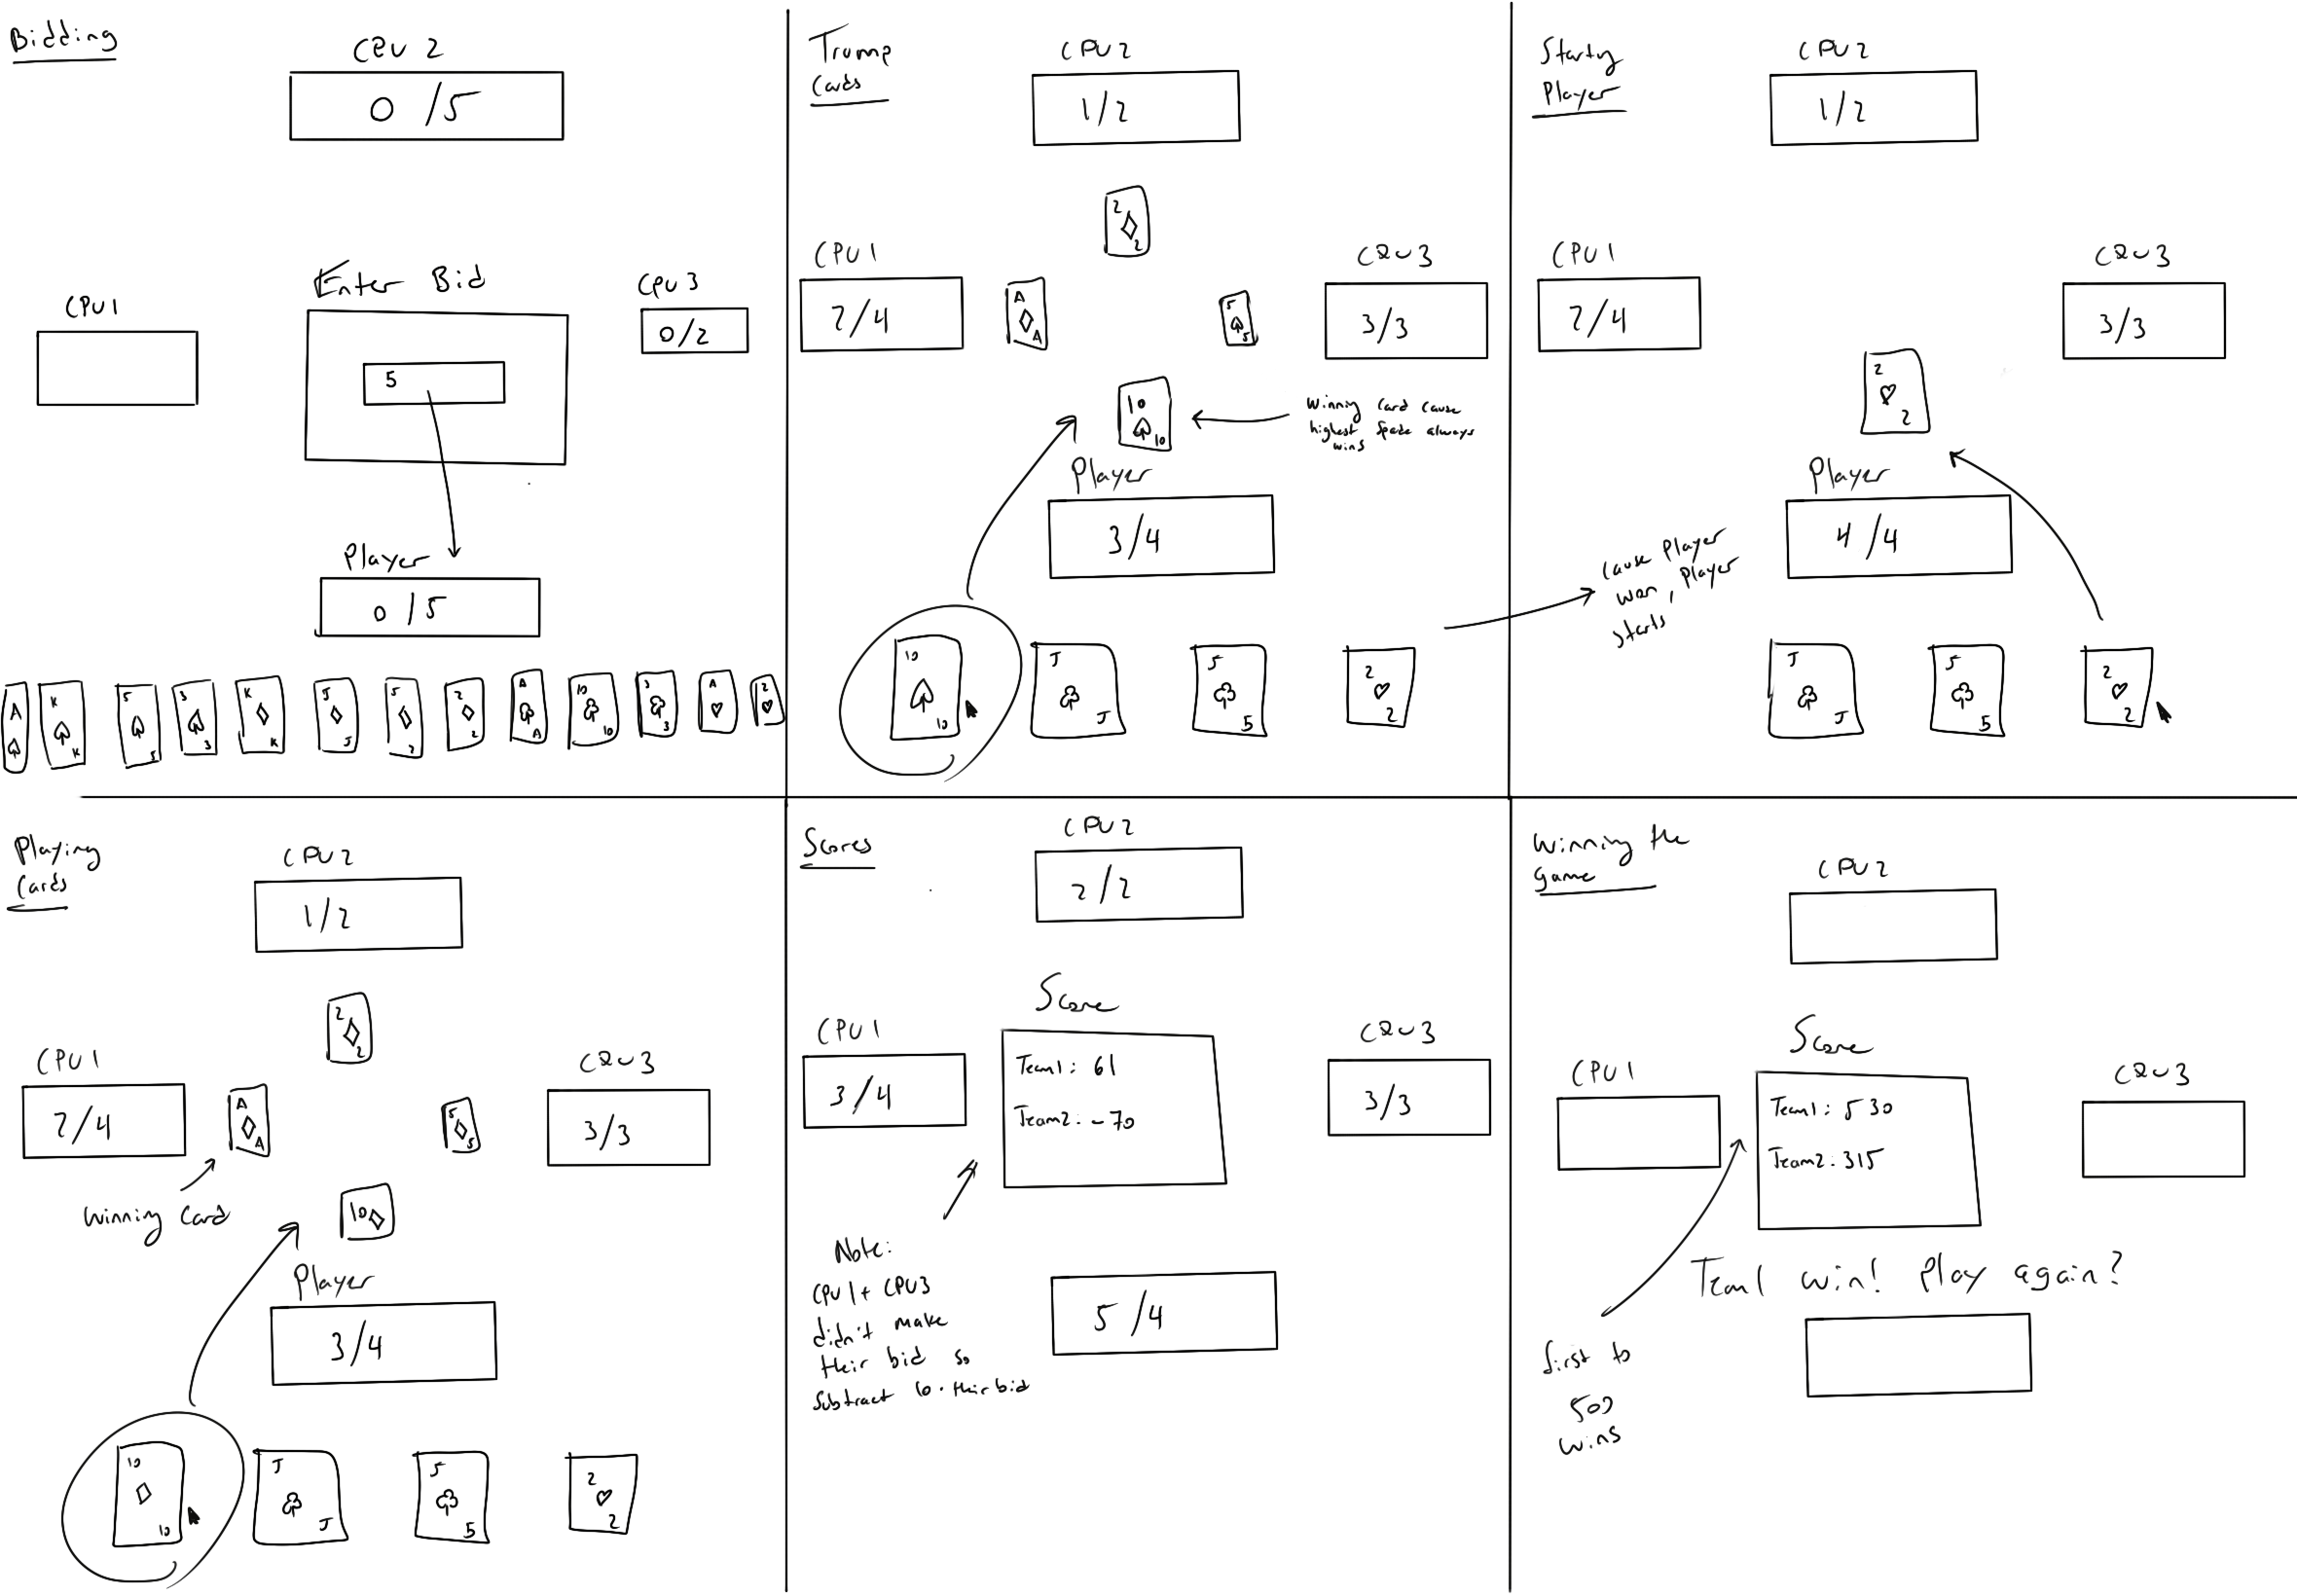 Bidding
CPU 2
0 /5
CPU1
Enter Bid
5
CPU3
0/2
Player
0 / 5
A ♠
K ♠ K
5 ♠ 5
3 ♠ 3
K ♦ K
J ♦ J
5 ♦ 2
2 ♦ 2
A ♣ A
10 ♣ 10
3 ♣ 3
A ♥
2 ♥
Trump
Cards
CPU2
1/2
2 ♦ 2
CPU1
2/4
A ♦ A
5 ♠ 5
CPU3
3/3
10 ♠ 10
Winning card cause
highest spade always
wins
Player
3/4
10 ♠ 10
J ♣ J
5 ♣ 5
2 ♥ 2
Starting
Player
CPU2
1/2
CPU1
2/4
CPU3
3/3
2 ♥ 2
Player
4/4
cause player
won, player
starts
J ♣ J
5 ♣ 5
2 ♥ 2
Playing
Cards
CPU2
1/2
2 ♦ 2
CPU1
2/4
A ♦ A
5 ♦ 5
CPU3
3/3
Winning Card
10 ♦
Player
3/4
10 ♦ 10
J ♣ J
5 ♣ 5
2 ♥ 2
Scores
CPU2
2/2
Score
CPU1
3/4
Team1: 61
Team2: -70
CPU3
3/3
Note:
CPU1 + CPU3
didn't make
their bid so
subtract 10 · their bid
5/4
Winning the
game
CPU2
Score
CPU1
Team1: 530
Team2: 315
CPU3
Team1 win! Play again?
first to
500
wins